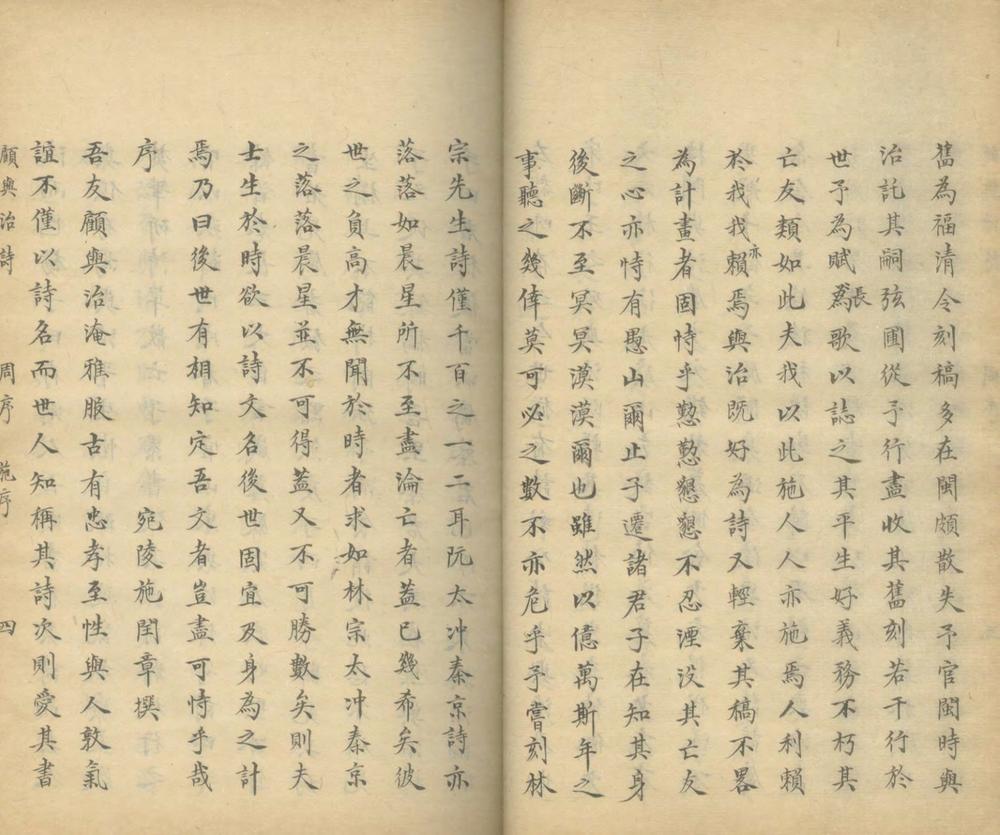 舊為福清令刻稿多在閩頗散失予官閩時與
治託其嗣弦圃從予行盡收其舊刻若干行於
世予為賦長歌以誌之其平生好義務不朽其
亡友類如此夫我以此施人人亦施焉人利賴
於我我亦賴焉與治既好為詩又輕棄其稿不畧
為計畫者固恃乎懃懃懇懇不忍湮沒其亡友
之心亦恃有愚山爾止子遷諸君子在知其身
後斷不至冥冥漠漠爾也雖然以億萬斯年之
事聽之幾倖莫可必之數不亦危乎予嘗刻林
宗先生詩僅千百之一二耳阮太冲秦京詩亦
落落如晨星所不至盡淪亡者蓋已幾希矣彼
世之負高才無聞於時者求如林宗太冲秦京
之落落晨星並不可得蓋又不可勝數矣則夫
士生於時欲以詩文名後世固宜及身為之計
焉乃曰後世有相知定吾文者豈盡可恃乎哉
序 宛陵施閏章撰
吾友顧與治淹雅服古有忠孝至性與人敦氣
誼不僅以詩名而世人知稱其詩次則愛其書
顧與治詩 周序 施序 四